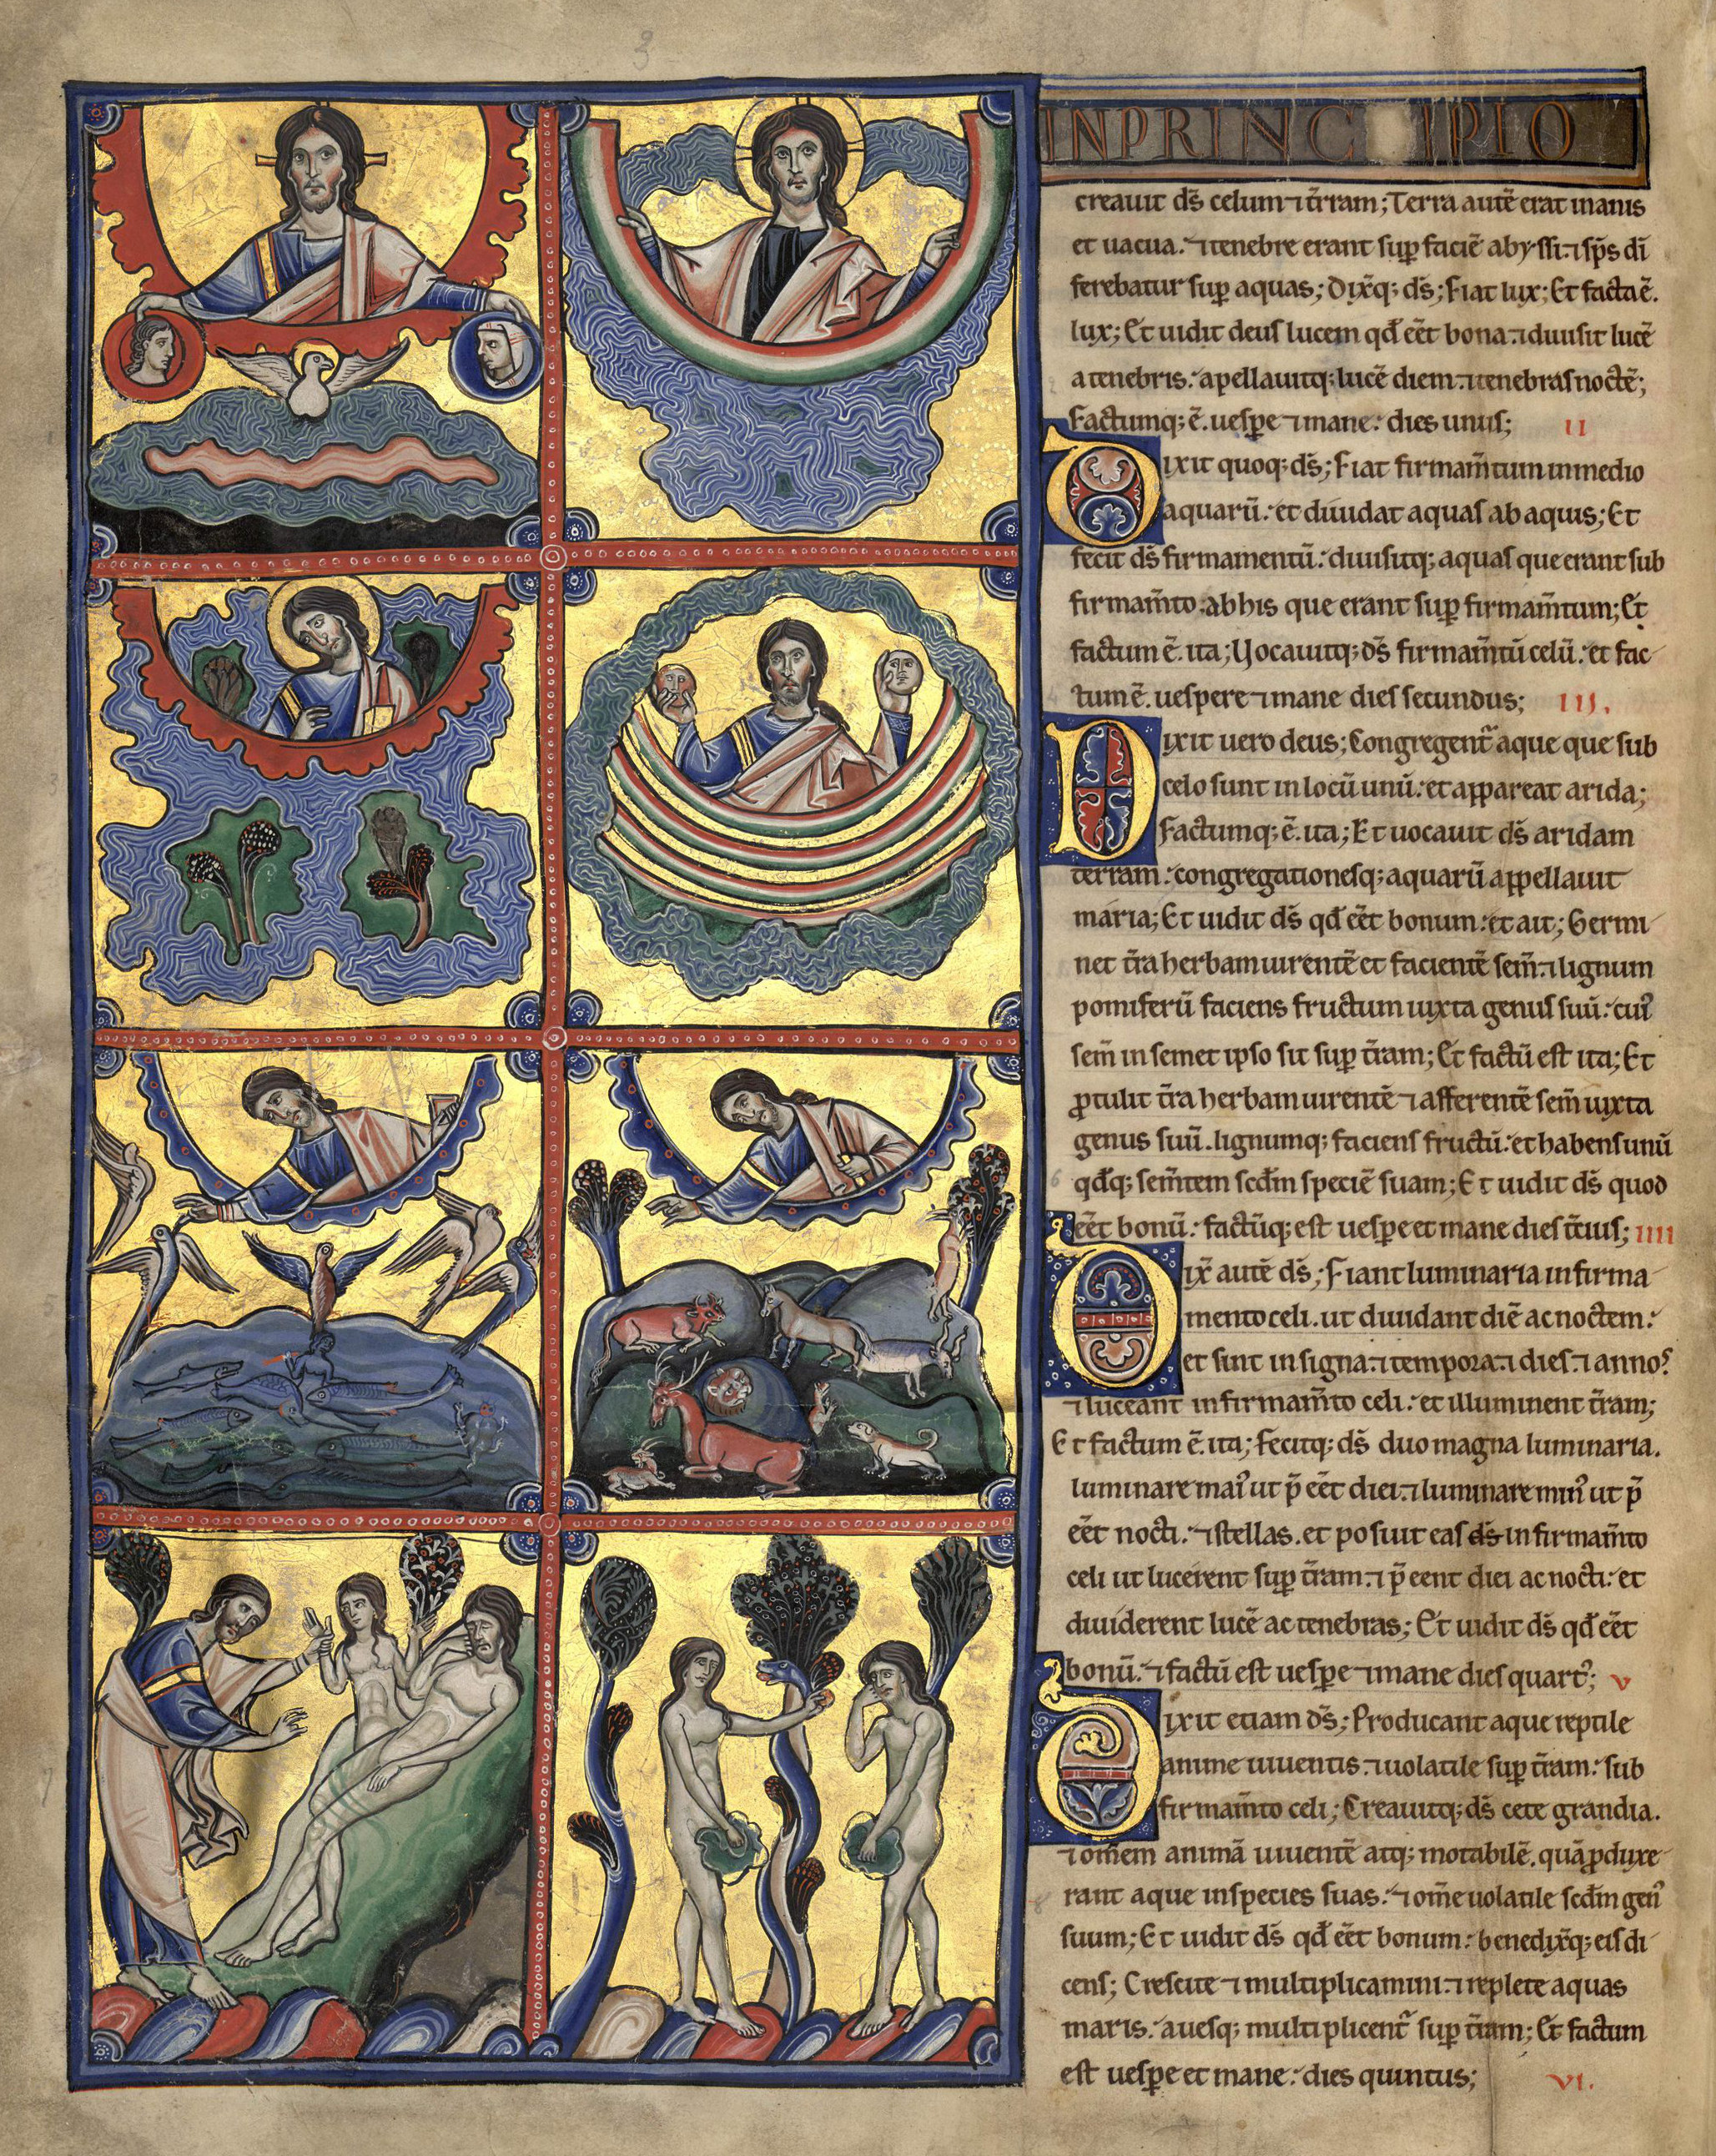 INPRINC IPIO
creauit ds̄ celum ⁊ t̄rram; Terra autē erat inanis
et uacua. ⁊ tenebre erant suꝑ faciē abyssi. ⁊ sps̄ di
ferebatur suꝑ aquas; Dixitq; ds̄; Fiat lux; Et facta ē.
lux; Et uidit deus lucem qđ eēt bona. ⁊ diuisit lucē
a tenebris. apellauitq; lucē diem. ⁊ tenebras noctē;
Factumq; ē. uesꝑe ⁊ mane. dies unus; II
Dixit quoq; ds̄; Fiat firmam̄tum in medio
aquarū. et diuidat aquas ab aquis; Et
fecit ds̄ firmamentū. diuisitq; aquas que erant sub
firmam̄to. ab his que erant suꝑ firmam̄tum; Et
factum ē. ita; Uocauitq; ds̄ firmam̄tū celū. et fac
tum ē. uespere ⁊ mane dies secundus; III.
Dixit uero deus; Congregent̄ aque que sub
celo sunt in locū unū. et appareat arida;
Factumq; ē. ita; Et uocauit ds̄ aridam
terram. congregationesq; aquarū appellauit
maria; Et uidit ds̄ qđ eēt bonum. et ait; Germi
net t̄ra herbam uirentē et facientē sem̄. ⁊ lignum
pomiferū faciens fructum iuxta genus suū. cui᷒
sem̄ in semet ipso sit suꝑ t̄ram; Et factū est ita; Et
ꝓtulit t̄ra herbam uirentē ⁊ afferentē sem̄ iuxta
genus suū. lignumq; faciens fructū. et habens unū
qđq; sem̄tem scđm speciē suam; Et uidit ds̄ quod
eēt bonū. factūq; est uesꝑe et mane dies t̄cius; IIII
Dix̄ autē ds̄; Fiant luminaria in firma
mento celi. ut diuidant diē ac noctem.
et sint in signa. ⁊ tempora. ⁊ dies. ⁊ annos
⁊ luceant in firmam̄to celi. et illuminent t̄ram;
Et factum ē. ita; Fecitq; ds̄ duo magna luminaria.
luminare mai᷒ ut p̄ eēt diei. ⁊ luminare min᷒ ut p̄
eēt nocti. ⁊ stellas. et posuit eas ds̄ in firmam̄to
celi ut lucerent suꝑ t̄ram. ⁊ p̄ eent diei ac nocti. et
diuiderent lucē ac tenebras; Et uidit ds̄ qđ eēt
bonū. ⁊ factū est uesꝑe ⁊ mane dies quart᷒; V
Dixit etiam ds̄; Producant aque reptile
anime uiuentis. ⁊ uolatile suꝑ t̄ram. sub
firmam̄to celi; Creauitq; ds̄ cete grandia.
⁊ om̄em animā uiuentē atq; motabilē. quā ꝓduxe
rant aque in species suas. ⁊ om̄e uolatile scđm gen᷒
suum; Et uidit ds̄ qđ eēt bonum. benedix̄q; eis di
cens; Crescite ⁊ multiplicamini. ⁊ replete aquas
maris. auesq; multiplicent̄ suꝑ t̄ram; Et factum
est uesꝑe et mane. dies quintus; VI.